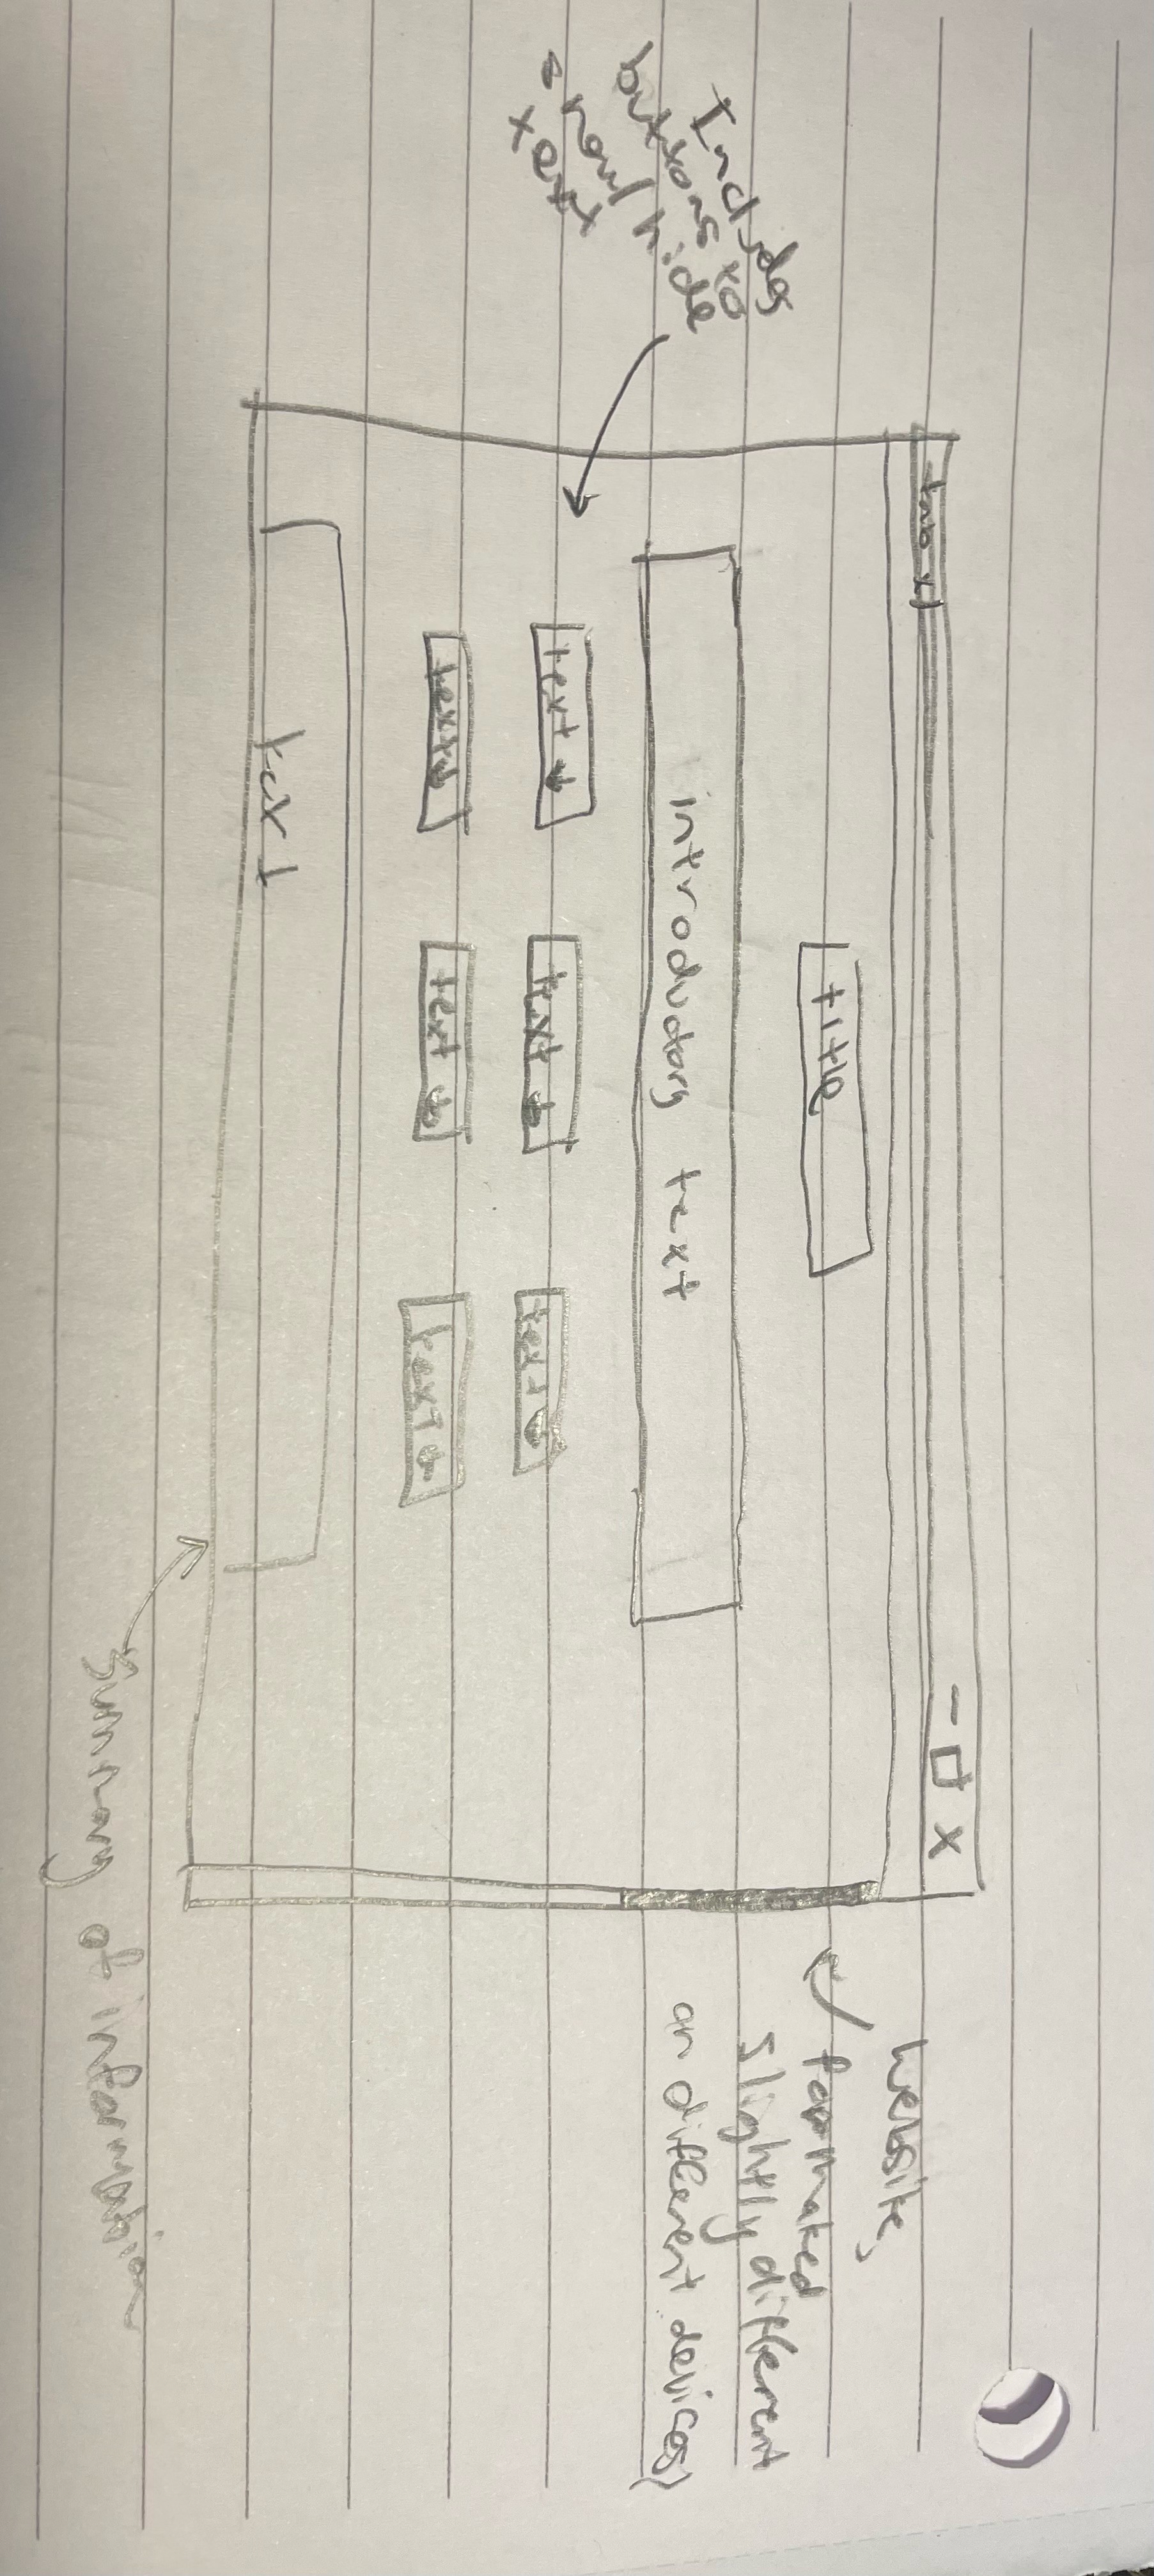 tab x
- □ x
title
introductory text
text ↓
text ↓
text ↓
text ↓
text ↓
text ↓
text
Includes
buttons to
show/hide
text
Website,
formatted
slightly different
on different devices
Summary of information